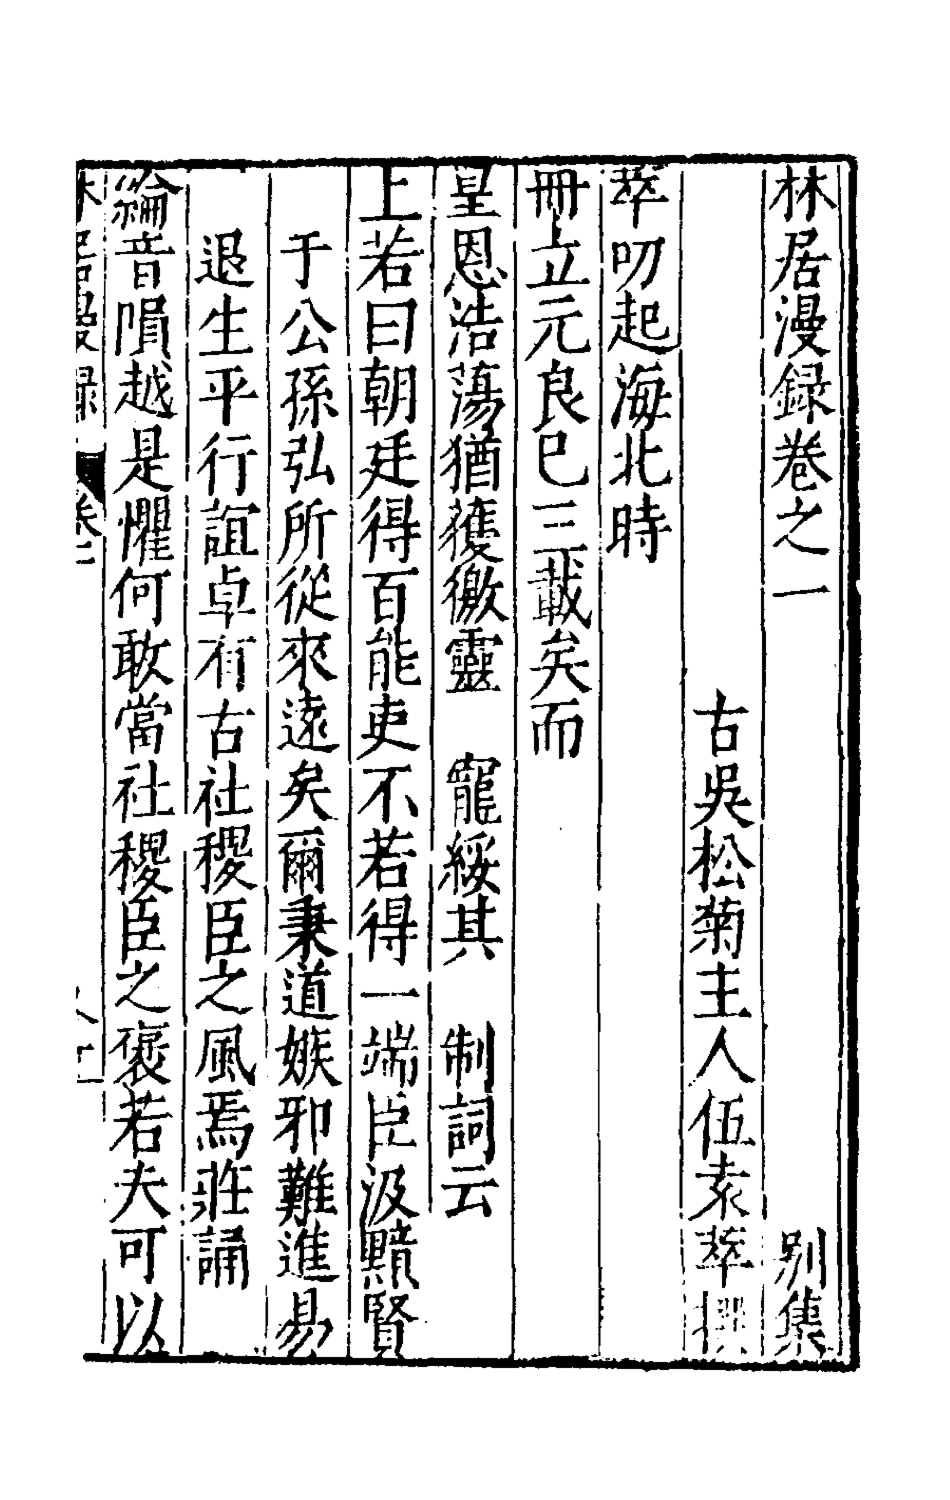 林居漫録卷之一　別集
古吳松菊主人伍袁萃撰
萃叨起海北時
冊立元良已三載矣而
皇恩浩蕩猶獲徼靈　寵綏其　制詞云
上若曰朝廷得百能吏不若得一端臣汲黯賢
于公孫弘所從來遠矣爾秉道嫉邪難進易
退生平行誼卓有古社稷臣之風焉莊誦
綸音隕越是懼何敢當社稷臣之褒若夫可以
林居漫録　卷一